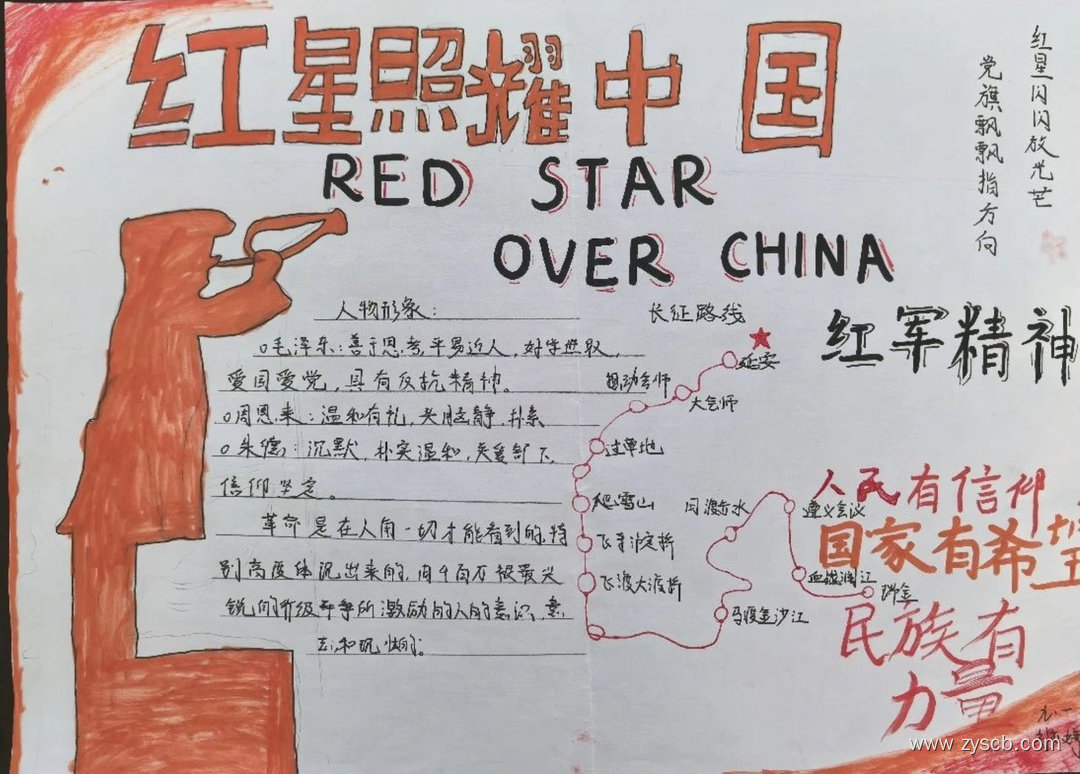 红星照耀中国
RED STAR
OVER CHINA
红星闪闪放光芒
党旗飘飘指方向
人物形象：
毛泽东：善于思考,平易近人，好学
爱国爱党，具有反抗精神。
周恩来：温和有礼，头脑静，朴素
朱德：沉默，朴实温和，关爱部下，
信仰坚定。
革命是在人间一切才能看到的，特
别高度体现出来的，由千百万被最尖
锐的阶级斗争所激励的人的意识，意
志和
长征路线
延安
大会师
过草地
爬雪山
飞渡大渡桥
马渡金沙江
遵义会议
血战湘江
瑞金
红军精神
人民有信仰
国家有希望
民族有
力量
www.zyscb.com